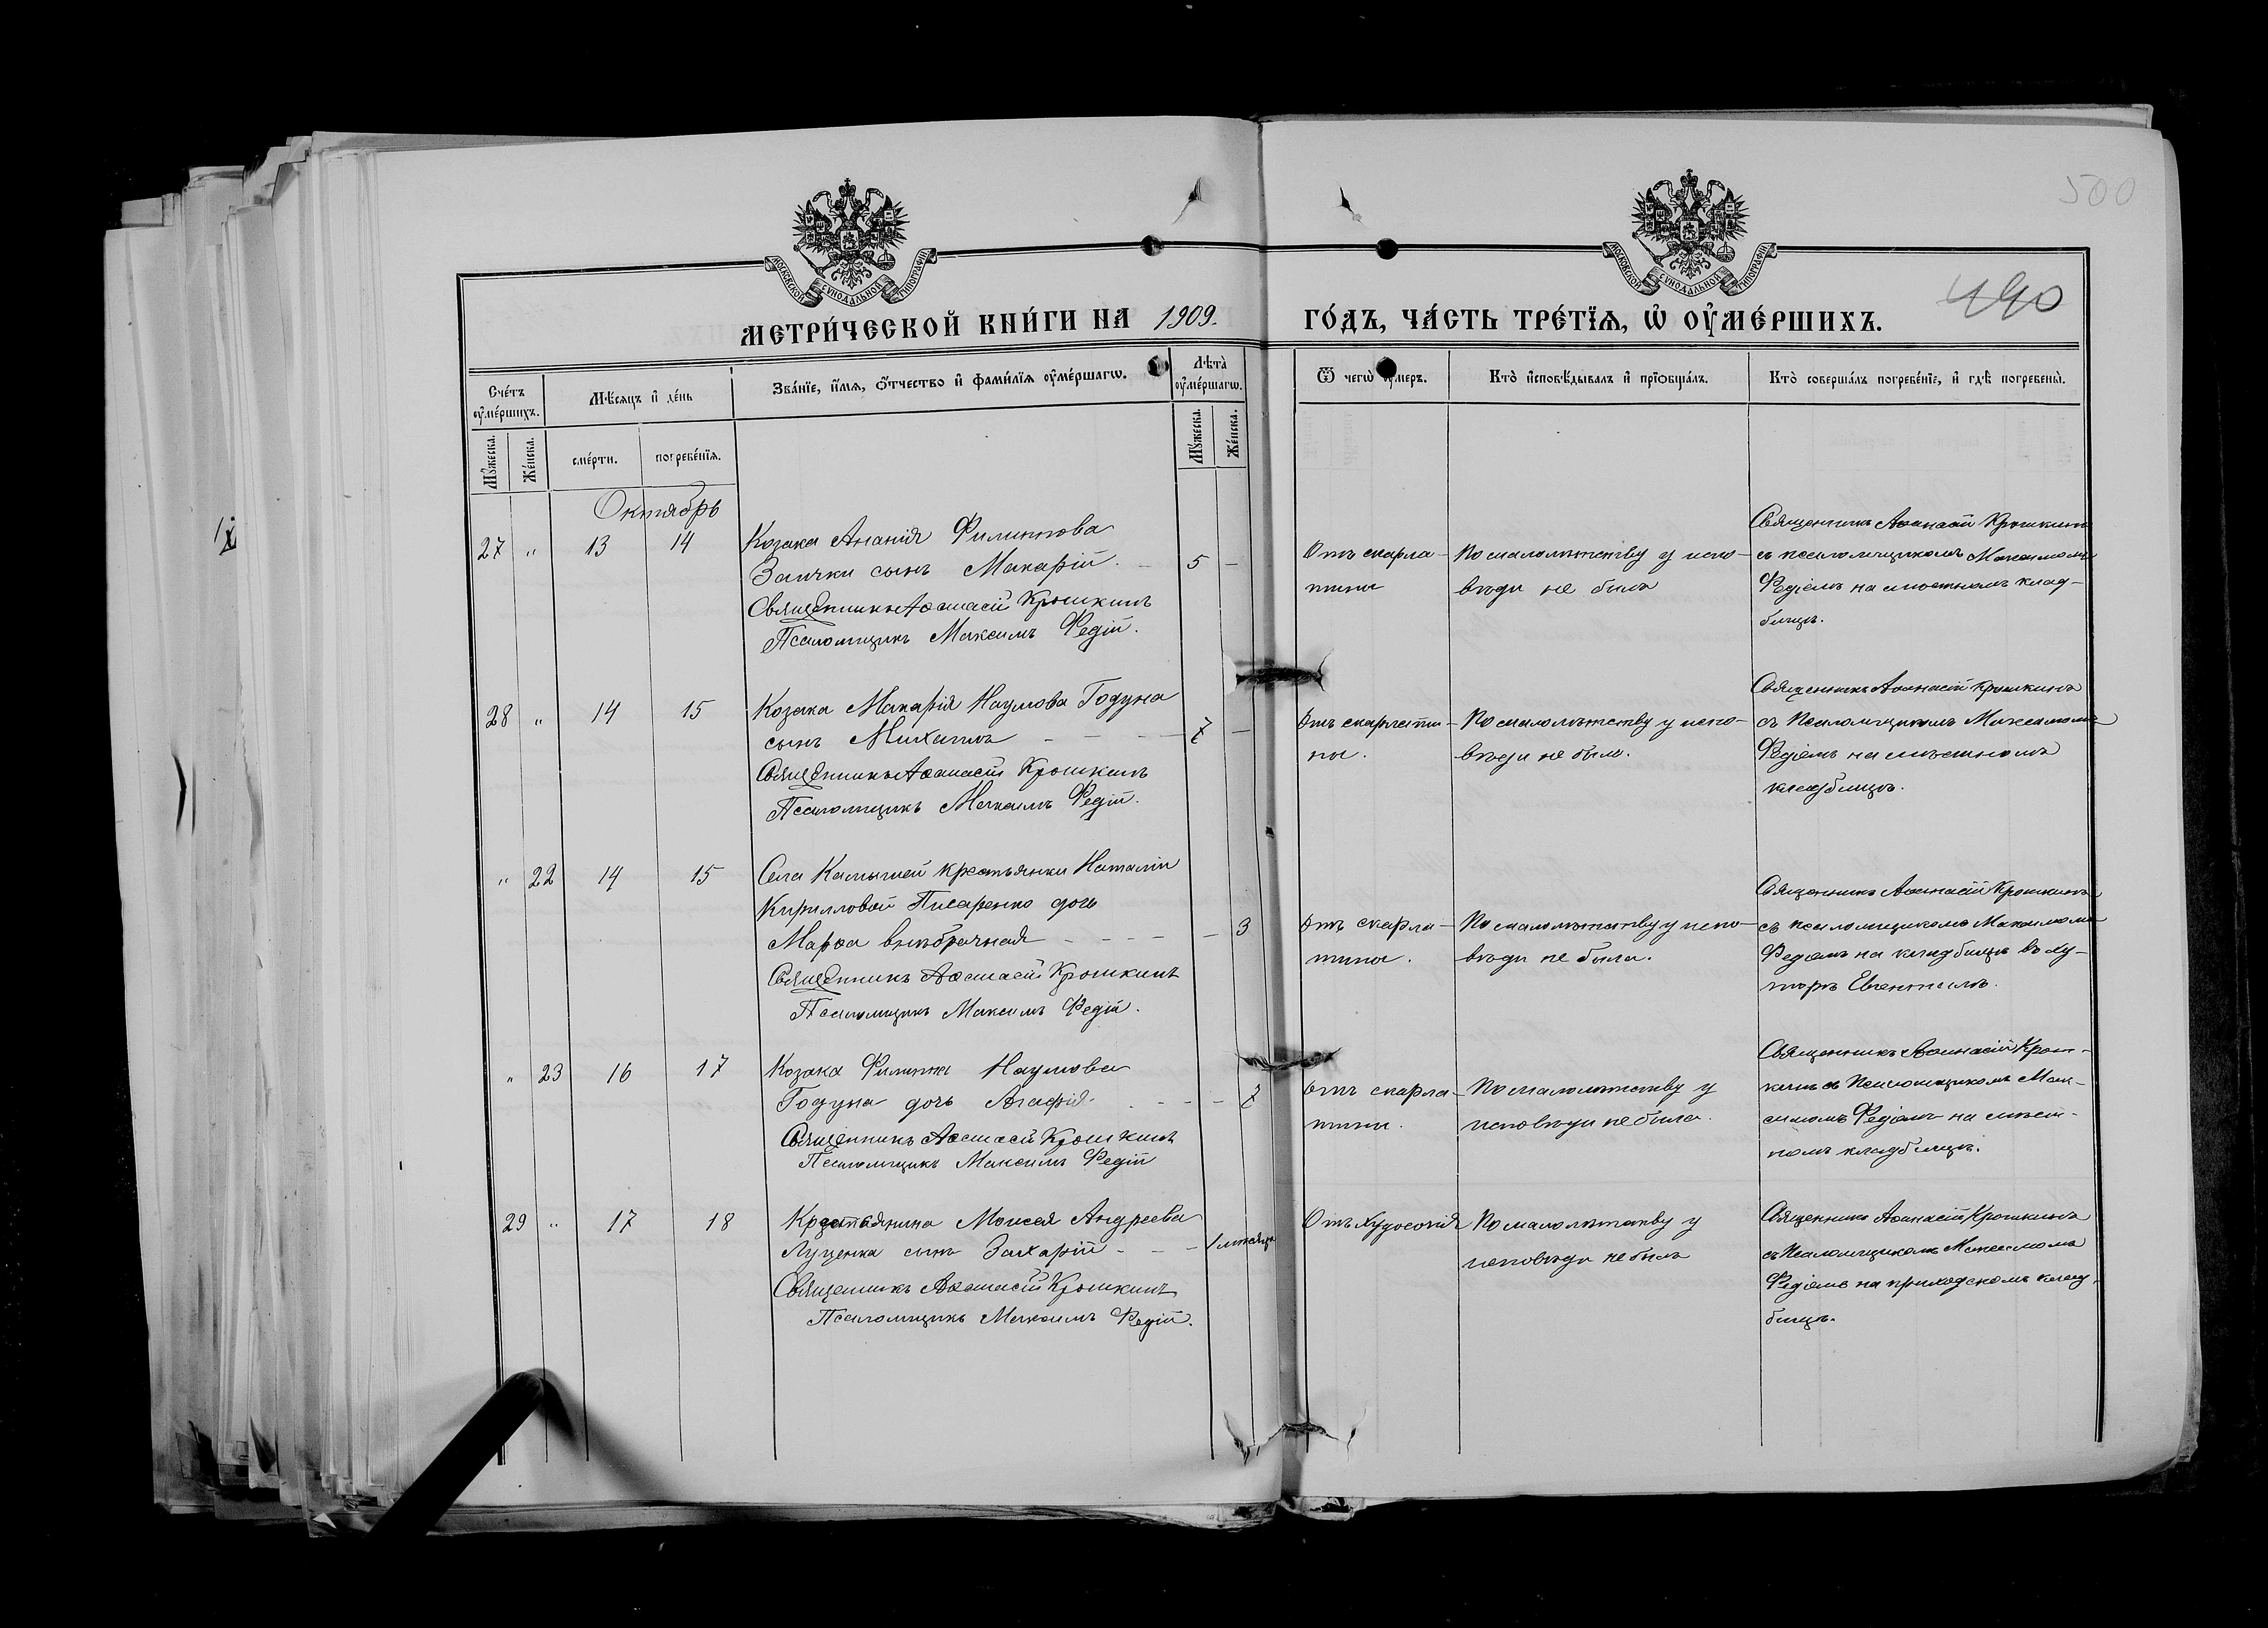 500
490
МОСКОВСКОЙ СѴНОДАЛЬНОЙ ТИПОГРАФІИ
МОСКОВСКОЙ СѴНОДАЛЬНОЙ ТИПОГРАФІИ
МЕТРИ́ЧЕСКОЙ КНИ́ГИ НА 1909. ГО́ДЪ, ЧА́СТЬ ТРЕ́ТЇѦ, Ѡ҆ ОУ҆МЕ́РШИХЪ.
Сче́тъ оу҆ме́ршихъ.
Мꙋ́жеска.
Же́нска.
Мѣ́сяцъ и҆ де́нь
сме́рти.
погребе́нїѧ.
Зва́нїе, и҆́мѧ, ѻ҆́тчество и҆ фами́лїѧ оу҆ме́ршагѡ.
Лѣта̀ оу҆ме́ршагѡ.
Мꙋ́жеска.
Же́нска.
Ѿ чегѡ̀ оу҆́меръ.
Кто̀ и҆сповѣ́дывалъ и҆ прїѻбща́лъ.
Кто̀ соверша́лъ погребе́нїе, и҆ гдѣ̀ погребены̀.
Октябрь
27 " 13 14
Козака Ананія Филиппова
Заички сынъ Макарій. — 5 —
Священникъ Аѳанасій Крошкинъ
Псаломщикъ Максимъ Федій.
Отъ скарла-
тины
По малолѣтству у испо-
вѣди не былъ
Священникъ Аѳанасій Крошкинъ
съ псаломщикомъ Максимомъ
Федіемъ на мѣстномъ клад-
бищѣ.
28 " 14 15
Козака Макарія Наумова Годуна
сынъ Михаилъ — — — 7 —
Священникъ Аѳанасій Крошкинъ
Псаломщикъ Максимъ Федій.
Отъ скарлати-
ны.
По малолѣтству у испо-
вѣди не былъ.
Священникъ Аѳанасій Крошкинъ
съ Псаломщикомъ Максимомъ
Федіемъ на мѣстномъ
кладбищѣ.
" 22 14 15
Села Камышей крестьянки Наталіи
Кирилловой Писаренко дочь
Марѳа внѣбрачная — — — — 3
Священникъ Аѳанасій Крошкинъ
Псаломщикъ Максимъ Федій.
Отъ скарла-
тины.
По малолѣтству у испо-
вѣди не была.
Священникъ Аѳанасій Крошкинъ
съ псаломщикомъ Максимомъ
Федіемъ на кладбищѣ въ ху-
торѣ
" 23 16 17
Козака Филиппа Наумова
Годуна дочь Агафія — — —
Священникъ Аѳанасій Крошкинъ
Псаломщикъ Максимъ Федій
Отъ скарла-
тины.
По малолѣтству у
исповѣди не была.
Священникъ Аѳанасій Крош-
кинъ съ Псаломщикомъ Мак-
симомъ Федіемъ на мѣст-
номъ кладбищѣ.
29 " 17 18
Крестьянина Моисея Андреева
Луценка сынъ Захарій — — — 1 мѣсяцъ
Священникъ Аѳанасій Крошкинъ
Псаломщикъ Максимъ Федій.
Отъ худосочія
По малолѣтству у
исповѣди не былъ
Священникъ Аѳанасій Крошкинъ
съ Псаломщикомъ Максимомъ
Федіемъ на приходскомъ клад-
бищѣ.